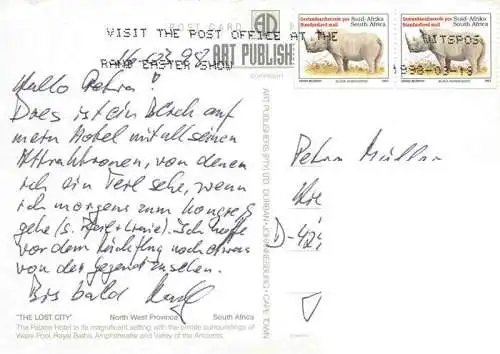 POST CARD
VISIT THE POST OFFICE AT THE
RAND EASTER SHOW
ART PUBLISH
COPYRIGHT
Gestandaardiseerde pos Suid-Afrika
Standardised mail South Africa
Gestandaardiseerde pos Suid-Afrika
Standardised mail South Africa
WITSPOS
1998-03-13
Hallo Petra!
Dies ist ein Blick auf
mein Hotel mit all seinen
Attraktionen, von denen
ich ein Teil sehe, wenn
ich morgens zum Kongreß
gehe (s. Pfeil + Linie). Ich hoffe
vor dem Rückflug noch etwas
von der Gegend zu sehen.
Bis bald
Petra Müller
D-42
ART PUBLISHERS (PTY) LTD. DURBAN • JOHANNESBURG • CAPE TOWN
"THE LOST CITY" North West Province South Africa
The Palace Hotel in its magnificent setting with the ornate surroundings of
Wave Pool, Royal Baths, Amphitheatre and Valley of the Ancients.